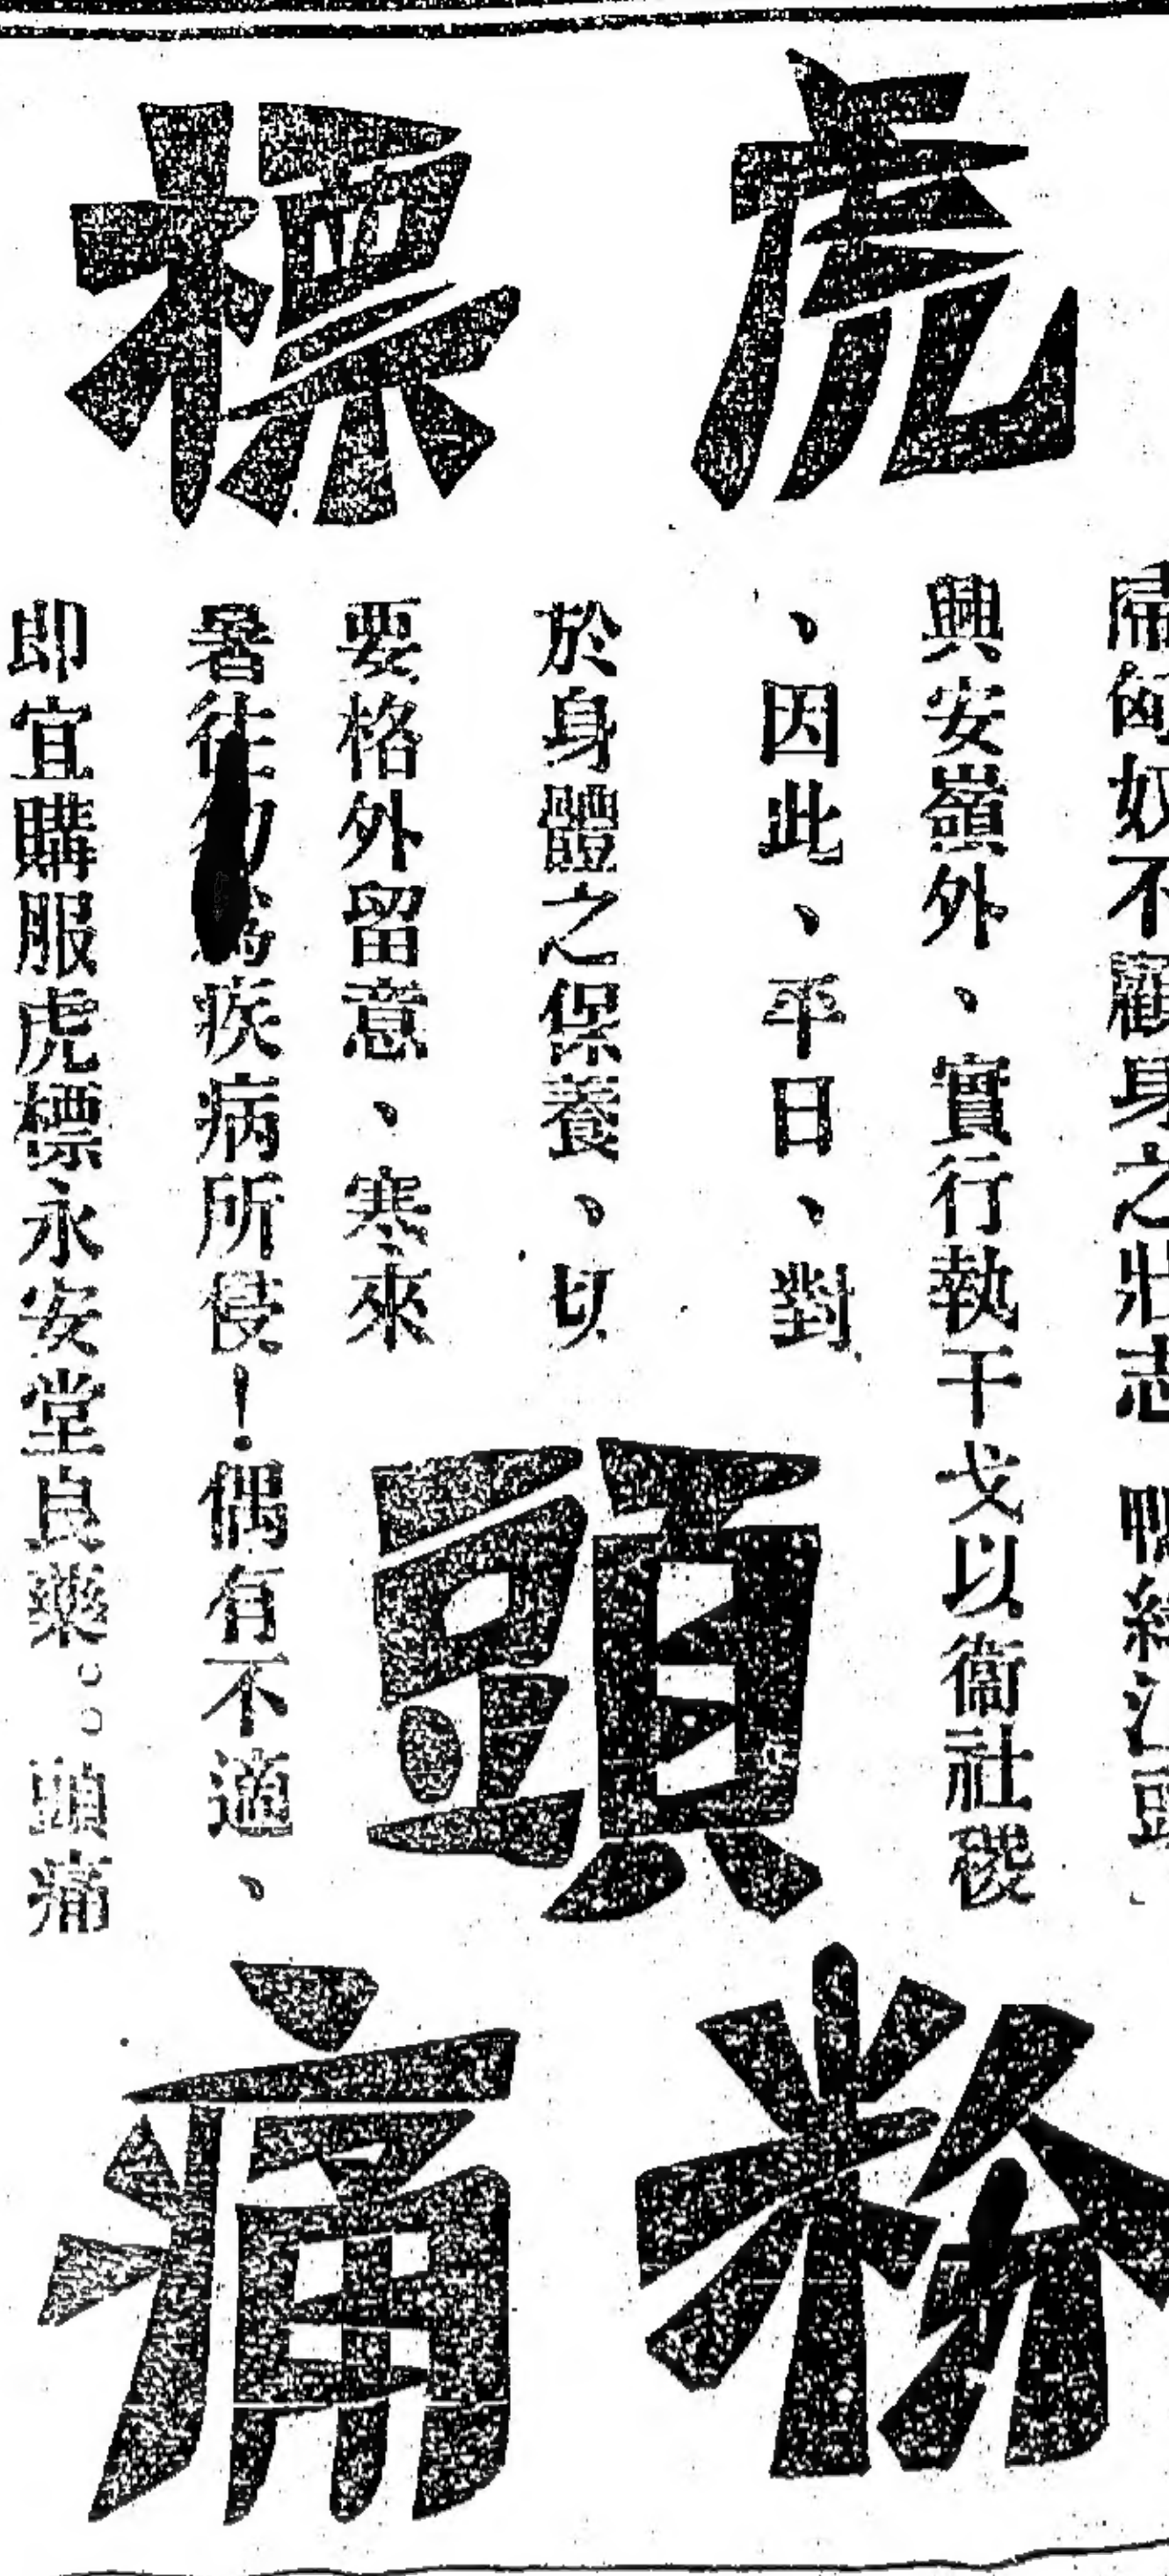 虎標
頭痛粉
掃匈奴不顧身之壯志 鴨綠江頭」
興安嶺外、實行執干戈以衞社稷
、因此、平日、對
於身體之保養、切
要格外留意、寒來
暑往勿爲疾病所侵!偶有不適、
即宜購服虎標永安堂良藥。。頭痛